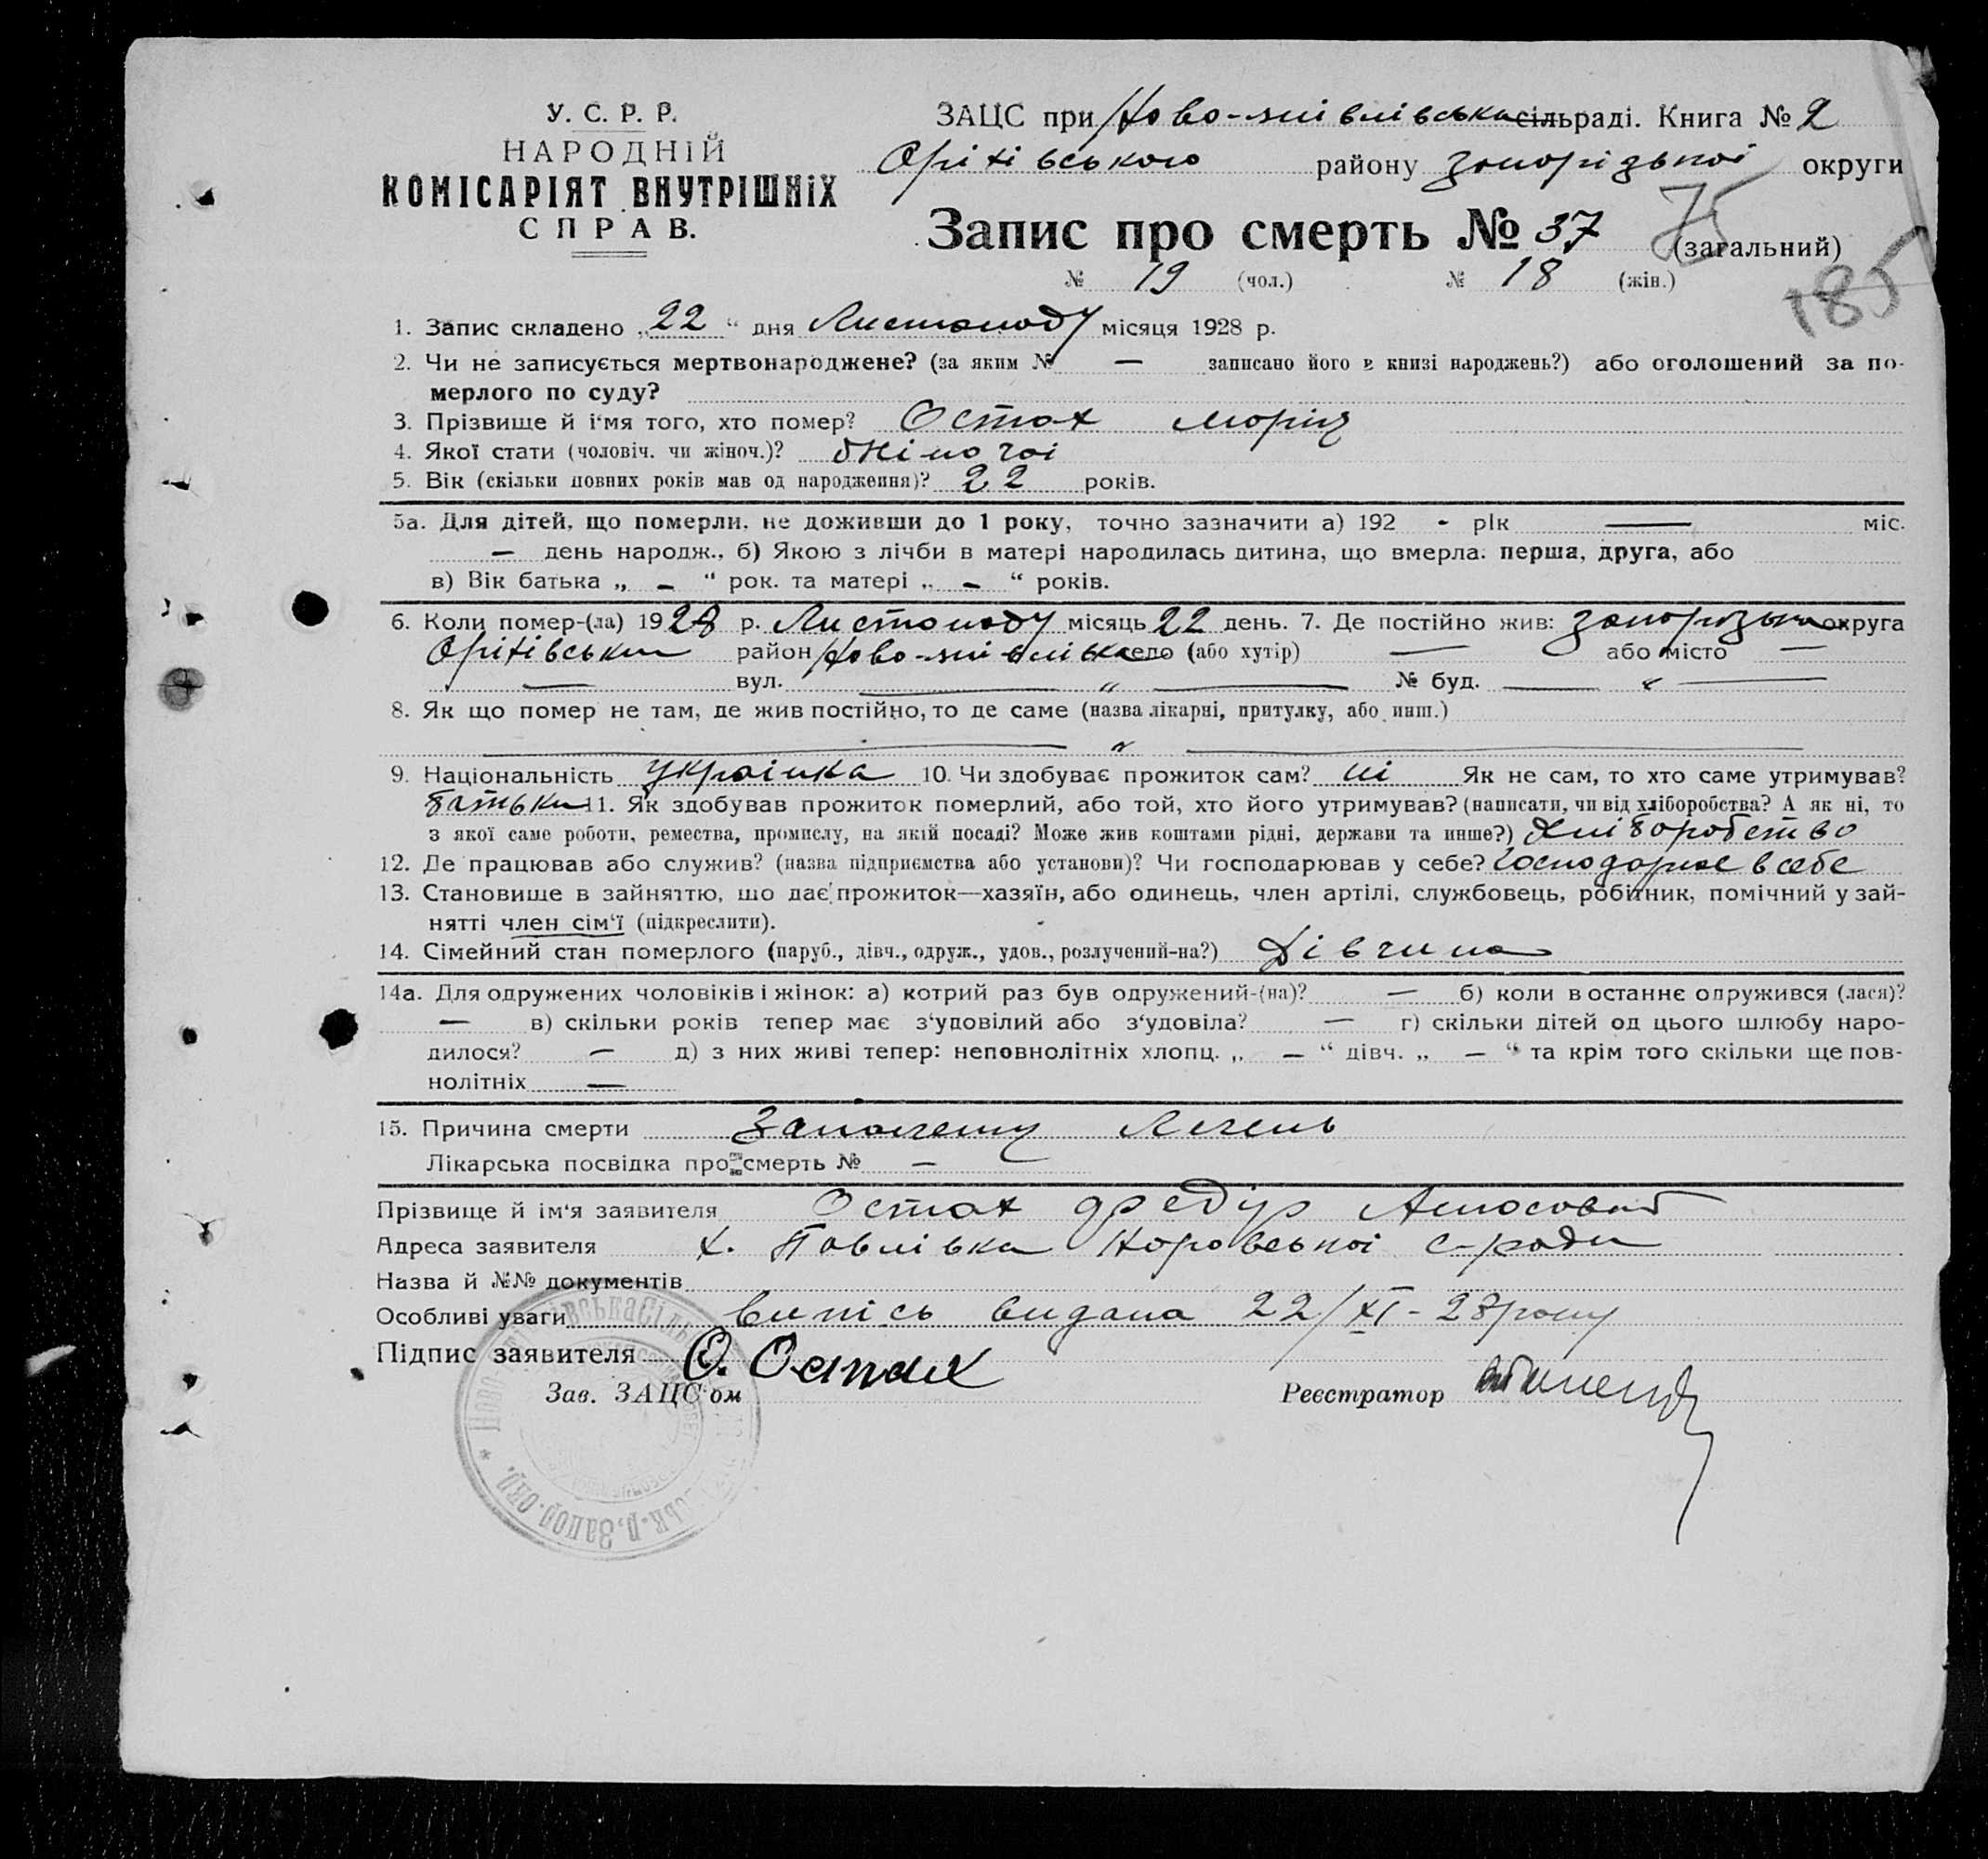 У. С. Р. Р.
НАРОДНІЙ
КОМІСАРІЯТ ВНУТРІШНІХ
СПРАВ.
ЗАЦС при сільраді. Книга № 2
Оріхівського району Запорізької округи
Запис про смерть № 37 (загальний)
75
№ 19 (чол.) № 18 (жін.)
185
1. Запис складено „22 “ дня Листопаду місяця 1928 р.
2. Чи не записується мертвонароджене? (за яким № — записано його в книзі народжень?) або оголошений за по-
мерлого по суду?
3. Прізвище й і‘мя того, хто помер? Остах Марія
4. Якої стати (чоловіч. чи жіноч.)? жіночої
5. Вік (скільки повних років мав од народження)? 22 років.
5а. Для дітей, що померли, не доживши до 1 року, точно зазначити а) 192 - рік — міс.
— день народж., б) Якою з лічби в матері народилась дитина, що вмерла: перша, друга, або
в) Вік батька „ – “ рок. та матері „ – “ років.
6. Коли помер-(ла) 1928 р. Листопаду місяць 22 день. 7. Де постійно жив: округа
Оріхівський район село (або хутір) — або місто —
— вул. — „ — № буд. — “ —
8. Як що помер не там, де жив постійно, то де саме (назва лікарні, притулку, або инш.)
— „ —
9. Національність українка 10. Чи здобуває прожиток сам? ні Як не сам, то хто саме утримував?
батьки 11. Як здобував прожиток померлий, або той, хто його утримував? (написати, чи від хліборобства? А як ні, то
з якої саме роботи, ремества, промислу, на якій посаді? Може жив коштами рідні, держави та инше?) Хліборобство
12. Де працював або служив? (назва підприємства або установи)? Чи господарював у себе? в себе
13. Становище в зайняттю, що дає прожиток—хазяїн, або одинець, член артілі, службовець, робітник, помічний у зай-
нятті член сім‘ї (підкреслити).
14. Сімейний стан померлого (паруб., дівч., одруж., удов., розлучений-на?) Дівчина
14а. Для одружених чоловіків і жінок: а) котрий раз був одружений-(на)? — б) коли в останнє одружився (лася)?
— в) скільки років тепер має з‘удовілий або з‘удовіла? — г) скільки дітей од цього шлюбу наро-
дилося? — д) з них живі тепер: неповнолітніх хлопц. „ – “ дівч. „ – “ та крім того скільки ще пов-
нолітніх —
15. Причина смерти
Лікарська посвідка про смерть № —
Прізвище й ім‘я заявителя Остах
Адреса заявителя х. Павлівка с-ради
Назва й №№ документів
Особливі уваги випісь видана 22/XI-28 року
Підпис заявителя О. Остах
Зав. ЗАЦС‘ом Реєстратор